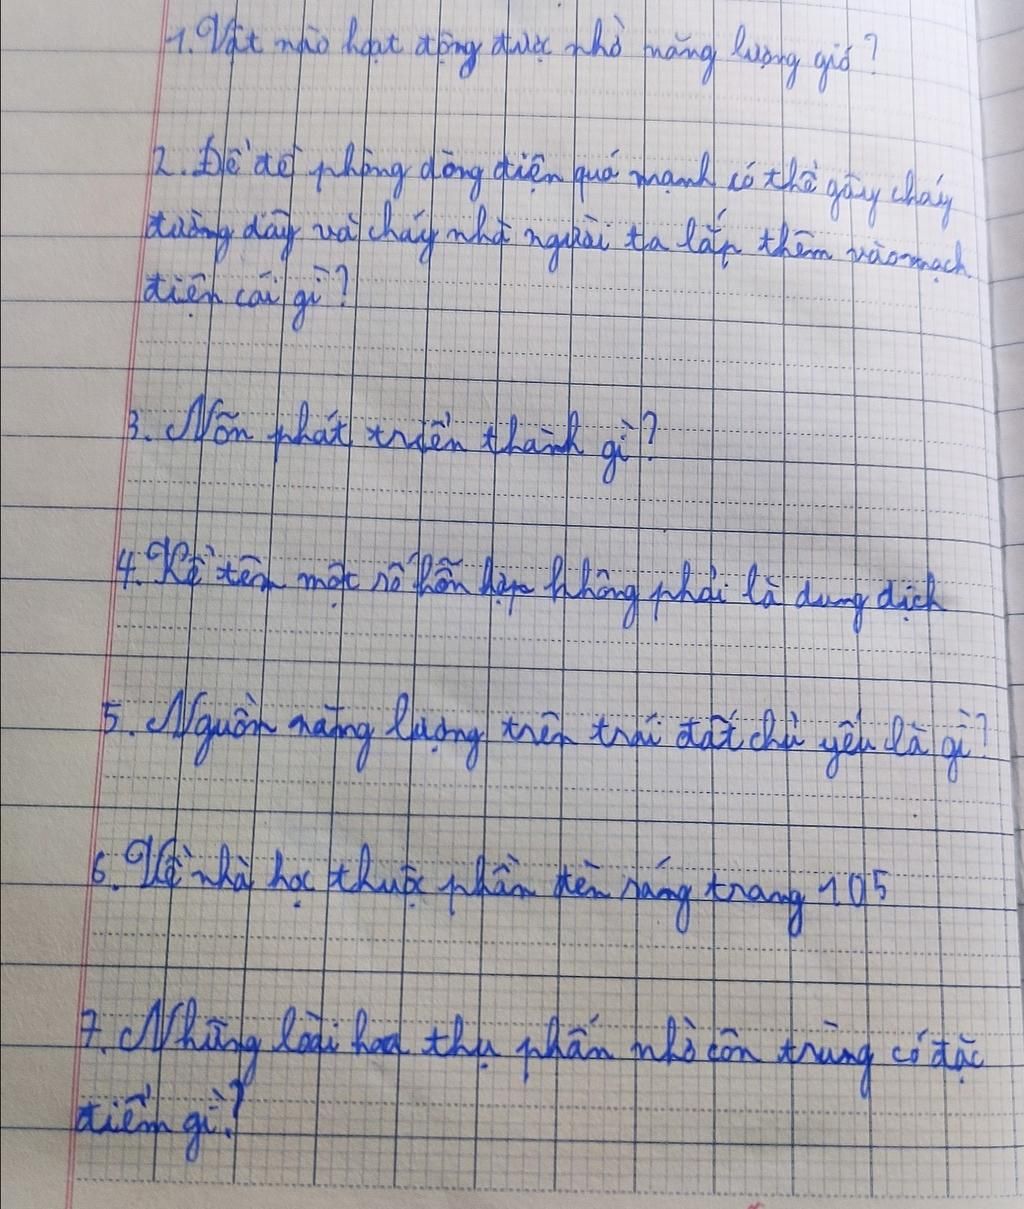 1. Vật nào hoạt động được nhờ năng lượng gió?
2. Để đề phòng dòng điện quá mạnh có thể gây cháy
đường dây và cháy nhà người ta lắp thêm vào mạch
điện cái gì?
3. Noãn phát triển thành gì?
4. Kể tên một số hỗn hợp không phải là dung dịch
5. Nguồn năng lượng trên trái đất chủ yếu là gì?
6. Về nhà học thuộc phần đèn sáng trang 105
7. Những loài hoa thụ phấn nhờ côn trùng có đặc
điểm gì?